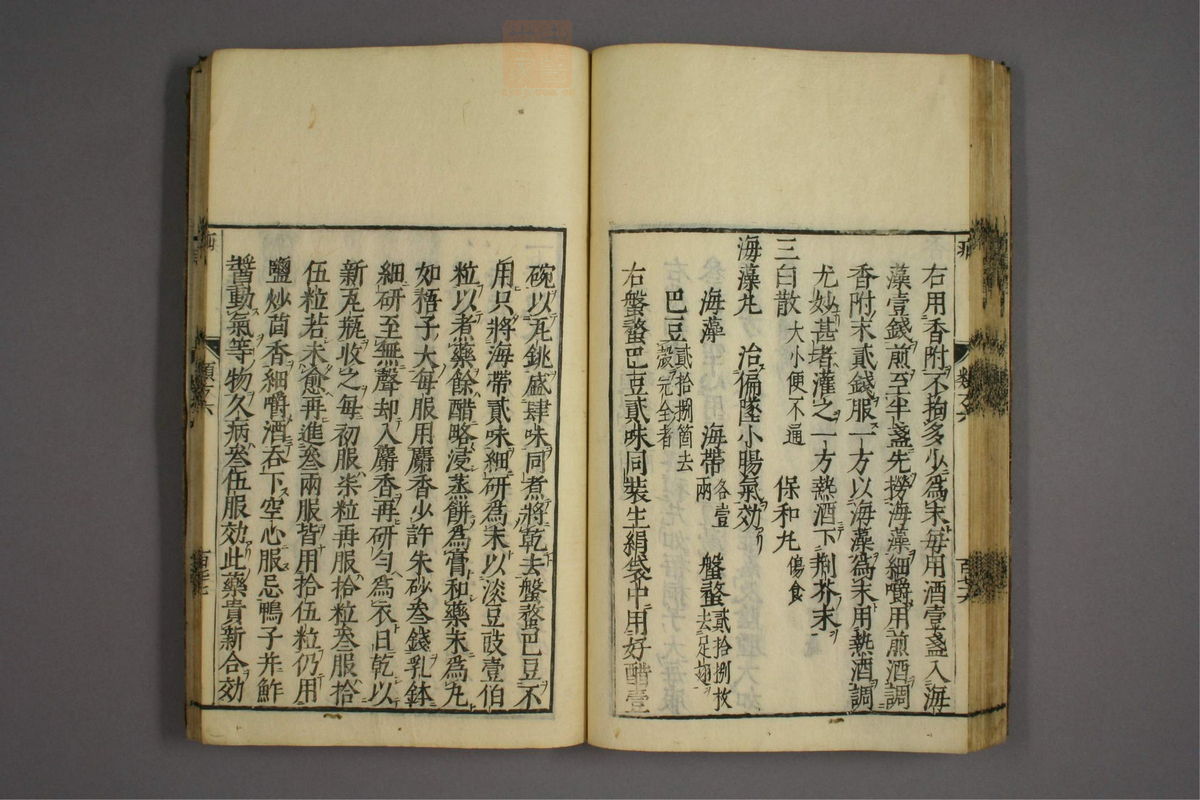 右用香附不拘多少爲末毎用酒壹盞入海
藻壹錢煎至半盞先撈海藻細嚼用煎酒調
香附末貳錢服一方以海藻爲末用熱酒調
尤妙甚者灌之一方熱酒下荆芥末
三白散 大小便不通 保和丸 傷食
海藻丸 治偏墜小腸氣効
海藻 海帶 各壹兩 盤蝥 貳拾捌枚去足翅
巴豆 貳拾捌箇去殼元全者
右盤蝥巴豆貳味同裝生絹袋中用好醋壹
碗以瓦銚盛肆味同煮將乾去盤蝥巴豆不
用只將海帶貳味細研爲末以淡豆豉壹伯
粒以煮藥餘醋略浸蒸餅爲膏和藥末爲丸
如梧子大每服用麝香少許朱砂叁錢乳鉢
細研至無聲却入麝香再研勻爲衣日乾以
新瓦瓶收之每初服柒粒再服拾粒叁服拾
伍粒若未愈再進叁兩服皆用拾伍粒仍用
鹽炒茴香細嚼酒吞下空心服忌鴨子并鮓
醬動氣等物久病叁伍服効此藥貴新合効